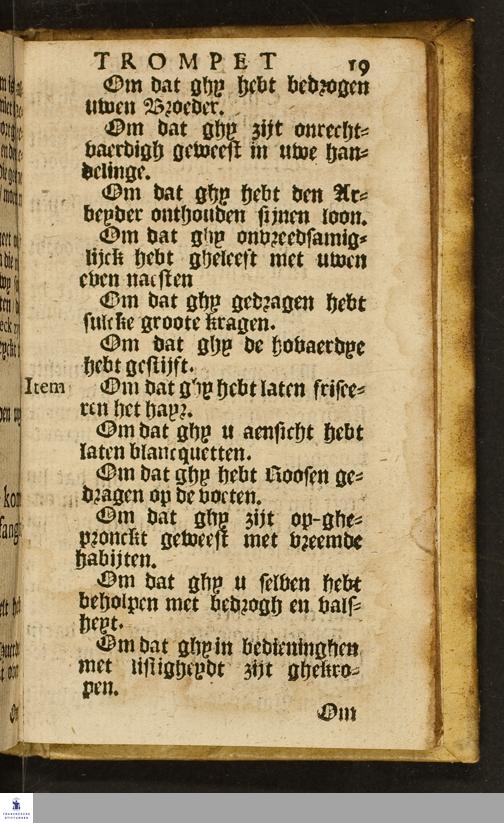 TROMPET 19
Om dat ghy hebt bedrogen
uwen Broeder.
Om dat ghy zijt onrecht-
vaerdigh geweest in uwe han-
delinge.
Om dat ghy hebt den Ar-
beyder onthouden sijnen loon.
Om dat ghy onvreedsamig-
lijck hebt gheleeft met uwen
even naesten
Om dat ghy gedragen hebt
sulcke groote kragen.
Om dat ghy de hovaerdye
hebt gestijft.
Item Om dat ghy hebt laten frisee-
ren het hayr.
Om dat ghy u aensicht hebt
laten blancquetten.
Om dat ghy hebt Roosen ge-
dragen op de voeten.
Om dat ghy zijt op-ghe-
pronckt geweest met vreemde
habijten.
Om dat ghy u selven hebt
beholpen met bedrogh en vals-
heyt.
Om dat ghy in bedieninghen
met listigheydt zijt ghekro-
pen.
Om